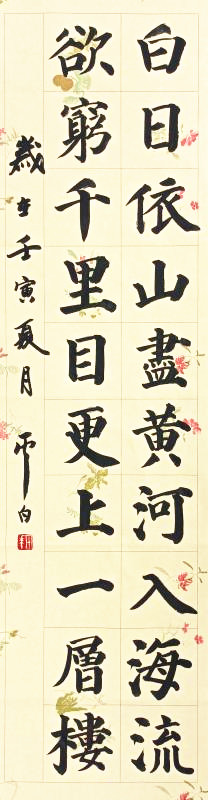 白日依山盡黃河入海流
欲窮千里目更上一層樓
歲在壬寅夏月